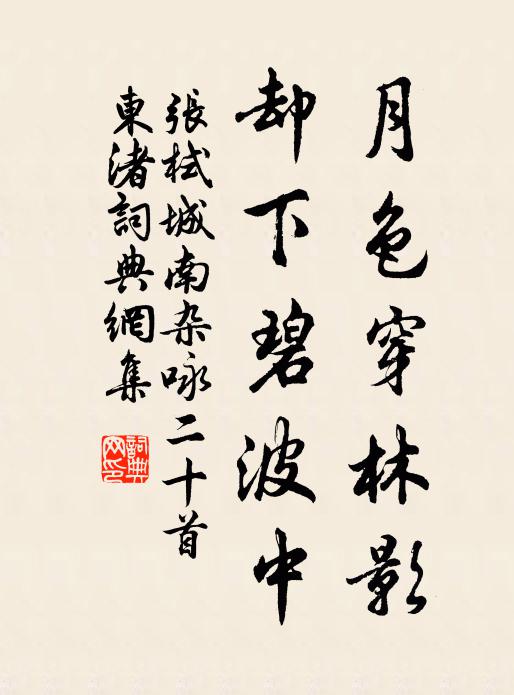 月色穿林影
却下碧波中
張栻城南杂咏二十首
東渚詞典網集
詞典网印